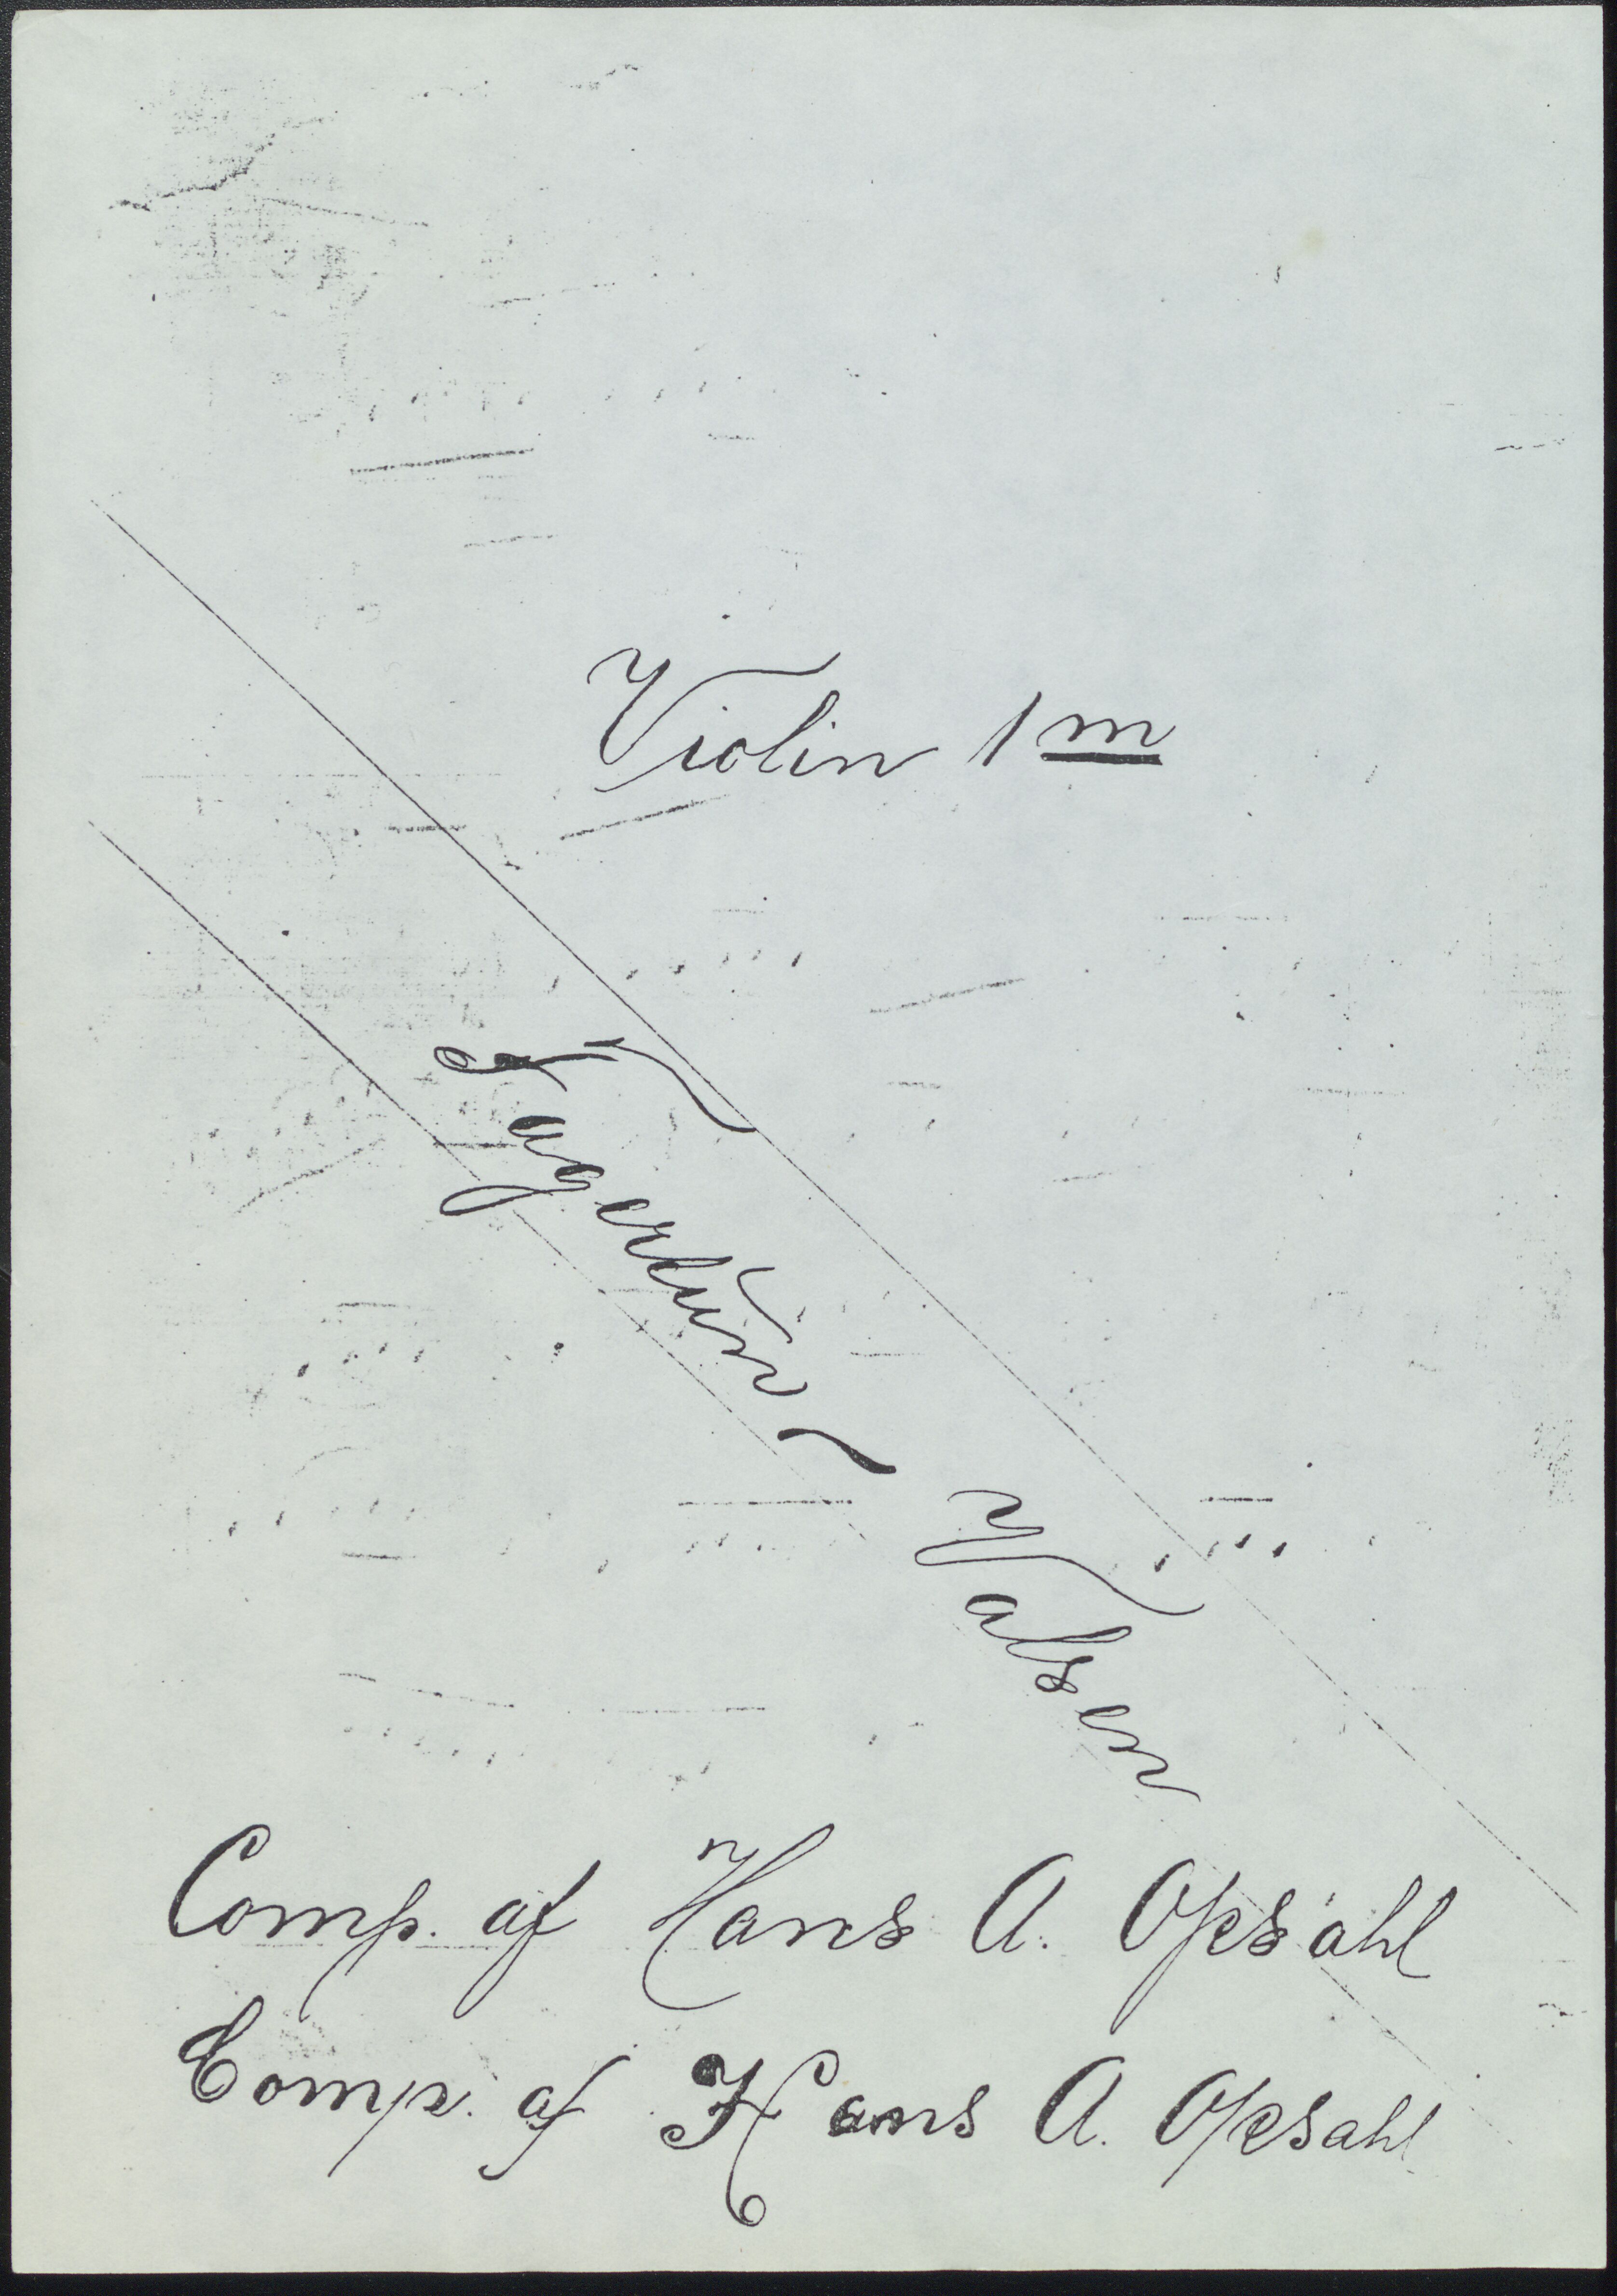 Violin 1m
Fagerlund - Valsen
Comp. af Hans A. Opsahl
Comp. af Hans A. Opsahl